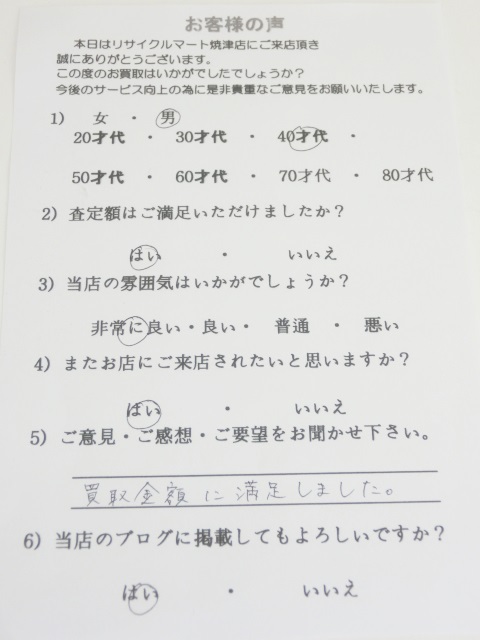 お客様の声
本日はリサイクルマート焼津店にご来店頂き
誠にありがとうございます。
この度のお買取はいかがでしたでしょうか？
今後のサービス向上の為に是非貴重なご意見をお願いいたします。
1） 女 ・ 男
20才代 ・ 30才代 ・ 40才代 ・
50才代 ・ 60才代 ・ 70才代 ・ 80才代
2）査定額はご満足いただけましたか？
はい ・ いいえ
3）当店の雰囲気はいかがでしょうか？
非常に良い・良い・ 普通 ・ 悪い
4）またお店にご来店されたいと思いますか？
はい ・ いいえ
5）ご意見・ご感想・ご要望をお聞かせ下さい。
買取金額に満足しました。
6）当店のブログに掲載してもよろしいですか？
はい ・ いいえ